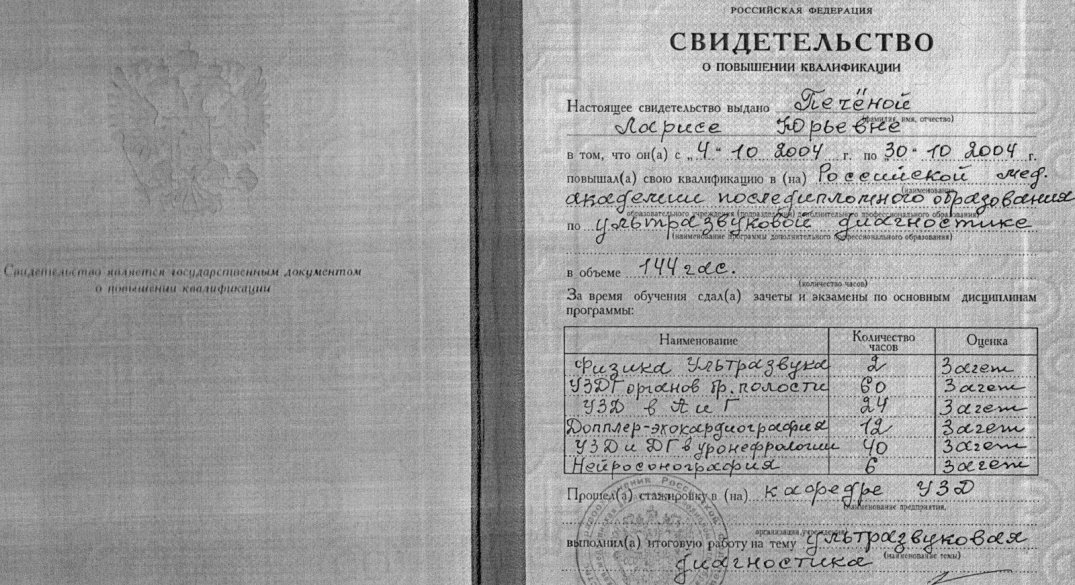 Свидетельство является государственным документом
о повышении квалификации
РОССИЙСКАЯ ФЕДЕРАЦИЯ
СВИДЕТЕЛЬСТВО
О ПОВЫШЕНИИ КВАЛИФИКАЦИИ
Настоящее свидетельство выдано Печёной
(фамилия, имя, отчество)
Ларисе Юрьевне
в том, что он(а) с „4“ 10 2004 г. по 30 10 2004 г.
повышал(а) свою квалификацию в (на) Российской мед.
(наименование
академии последипломного образования
образовательного учреждения (подразделения) дополнительного профессионального образования)
по ультразвуковой диагностике
(наименование программы дополнительного профессионального образования)
в объеме 144 час.
(количество часов)
За время обучения сдал(а) зачеты и экзамены по основным дисциплинам
программы:
Наименование Количество часов Оценка
Физика Ультразвука 2 Зачет
УЗДГ органов бр. полости 60 Зачет
УЗД в А и Г 24 Зачет
Допплер-эхокардиография 12 Зачет
УЗД и ДГ в уронефрологии 40 Зачет
Нейросонография 6 Зачет
Прошел(а) стажировку в (на) кафедре УЗД
(наименование предприятия,
организации, учреждения)
выполнил(а) итоговую работу на тему ультразвуковая
(наименование темы)
диагностика